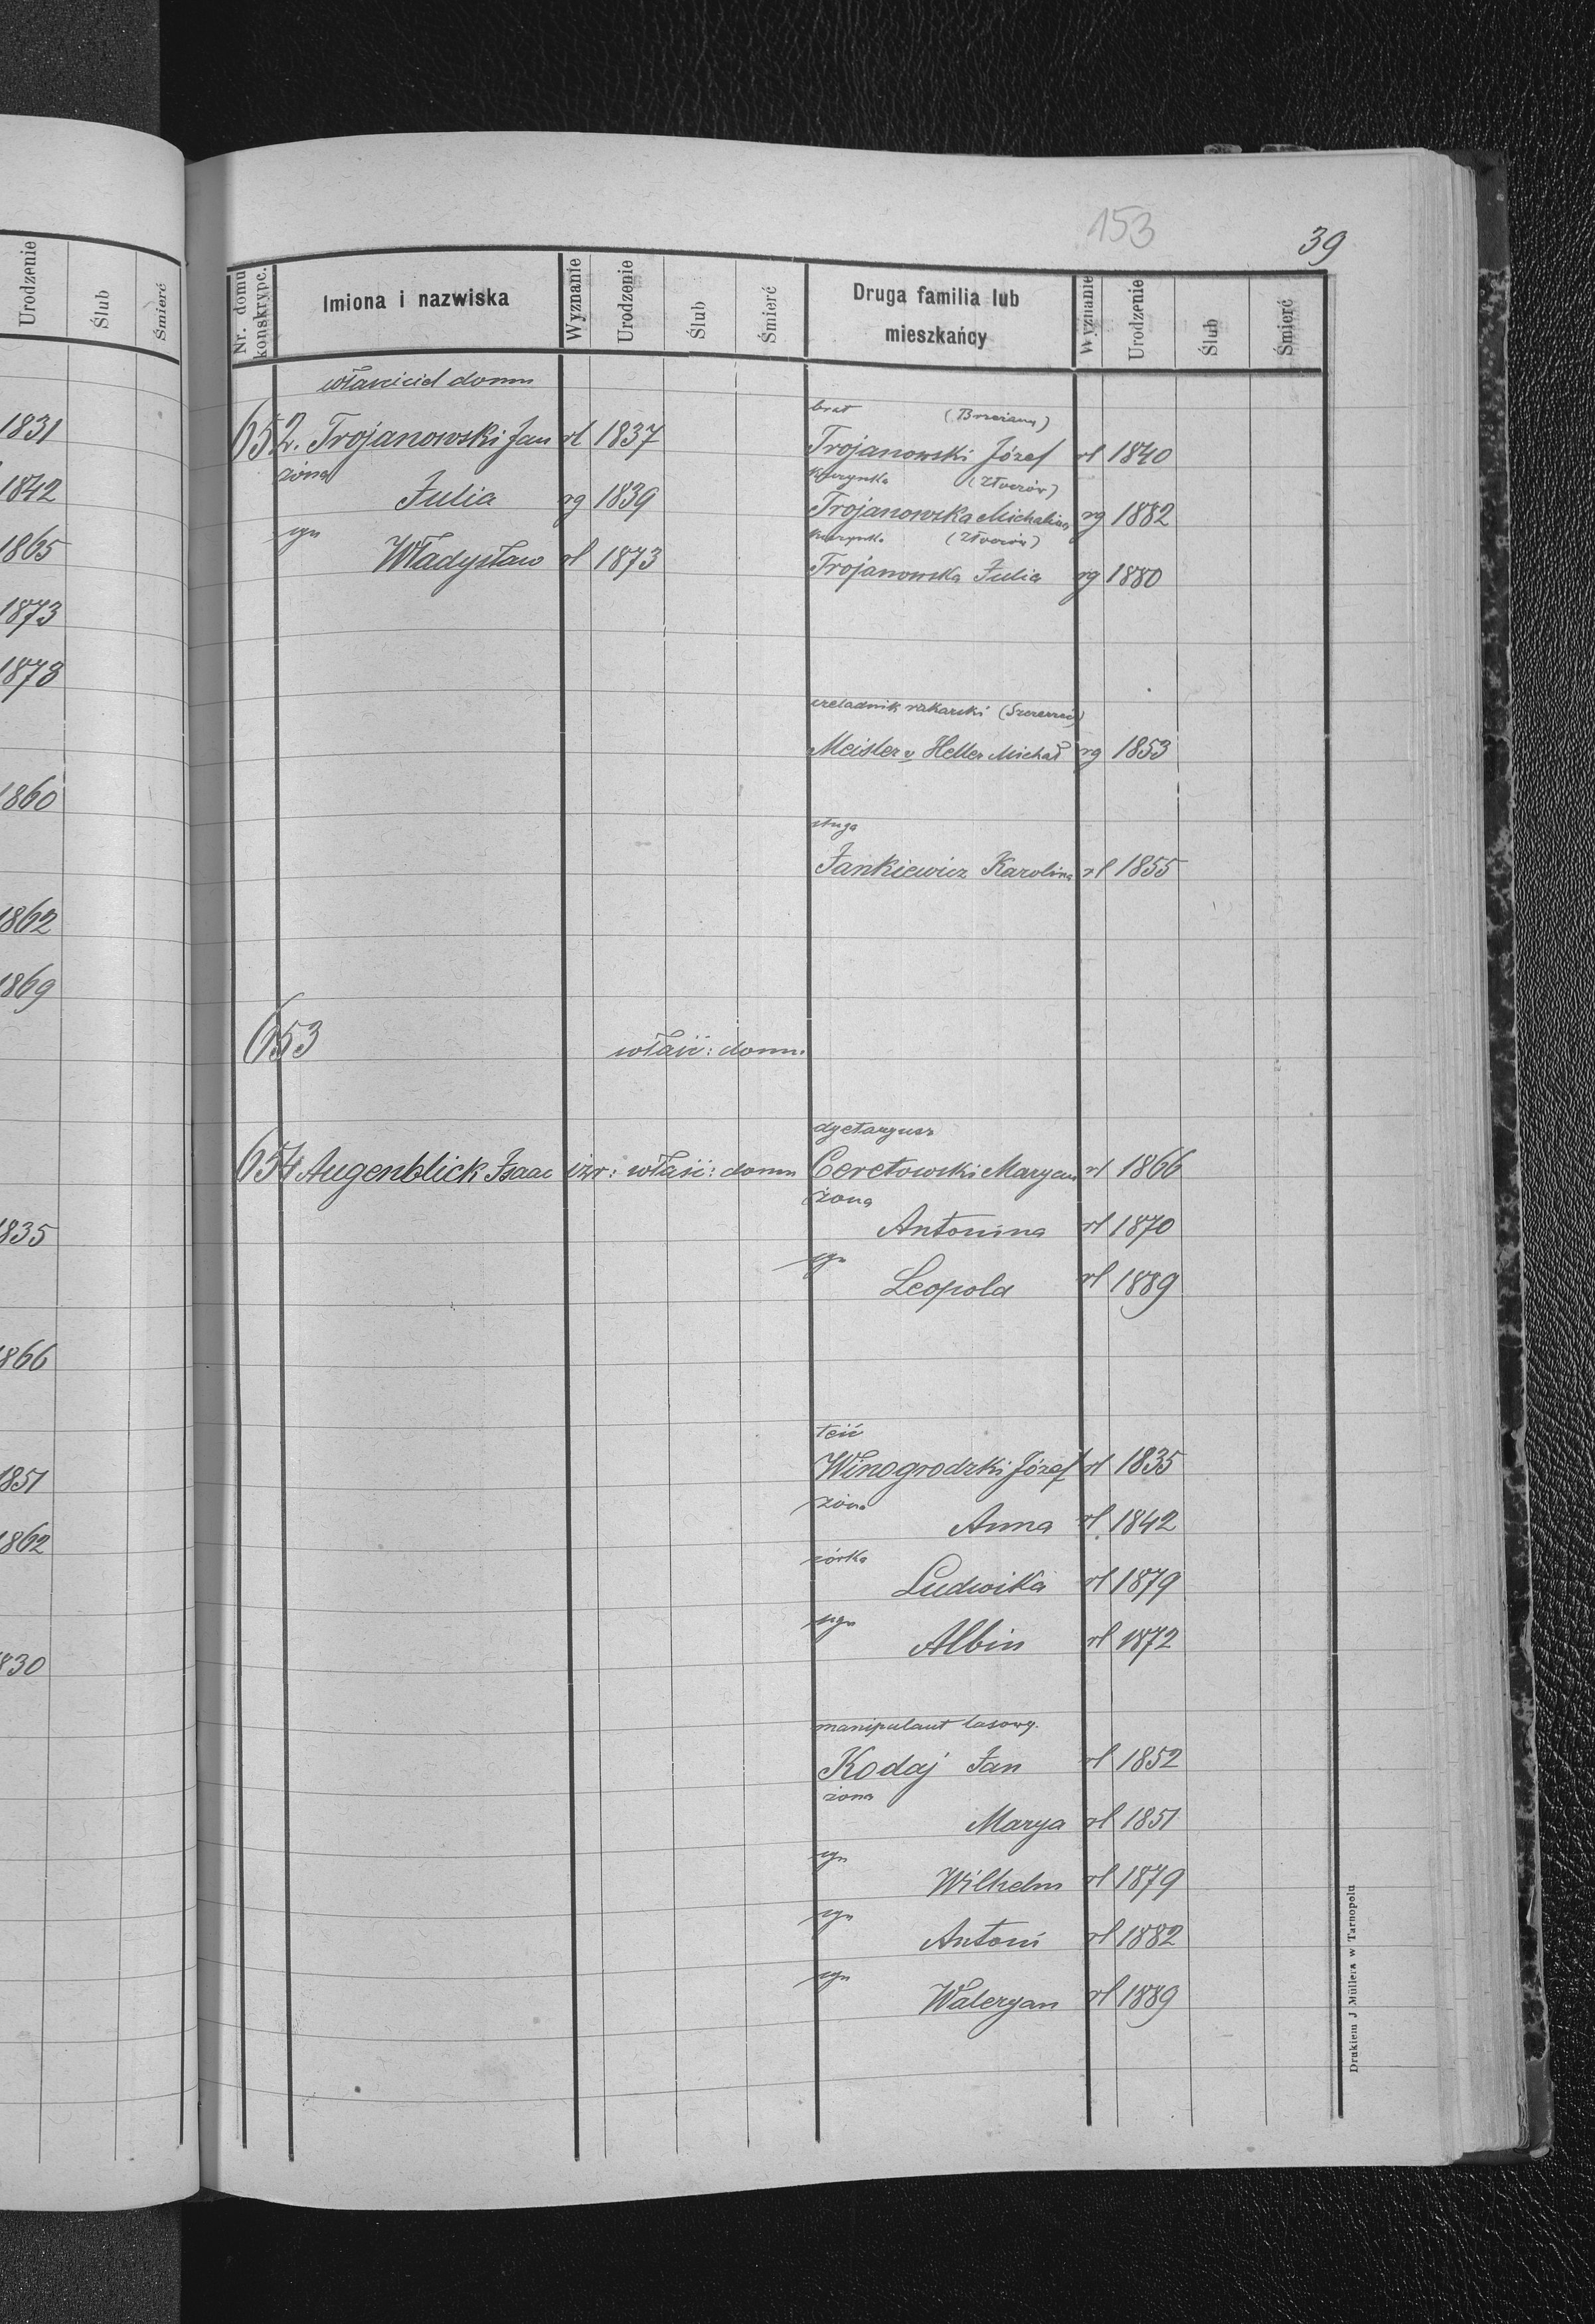 153
39
Urodzenie Ślub Śmierć
Nr. domu konskrypc. Imiona i nazwiska Wyznanie Urodzenie Ślub Śmierć Druga familia lub mieszkańcy Wyznanie Urodzenie Ślub Śmierć
1831
1842
1865
1873
1873
1860
1862
1869
1835
1866
1851
1862
1830
właściciel domu
brat (Brzeżany)
652. Trojanowski Jan rl 1837 Trojanowski Józef rl 1840
żona (Złoczów)
Julia rg 1839 Trojanowska Michalina rg 1882
syn kuzynka (Złoczów)
Władysław rl 1873 Trojanowska Julia rg 1880
czeladnik rakarski
Meisler v Heller Michał rg 1853
sługa
Jankiewicz Karolina rl 1855
653 właść: domu
dyetaryusz
654 Augenblick Isaac izr: właść: domu Ceretowski Maryan rl 1866
żona
Antonina rl 1870
syn
Leopold rl 1889
teść
Winogrodzki Józef rl 1835
żona
Anna rl 1842
córka
Ludwika rl 1879
syn
Albin rl 1872
manipulant lasowy.
Kodaj Jan rl 1852
żona
Marya rl 1851
syn
Wilhelm rl 1879
syn
Antoni rl 1882
syn
Waleryan rl 1889
Drukiem J Müllera w Tarnopolu